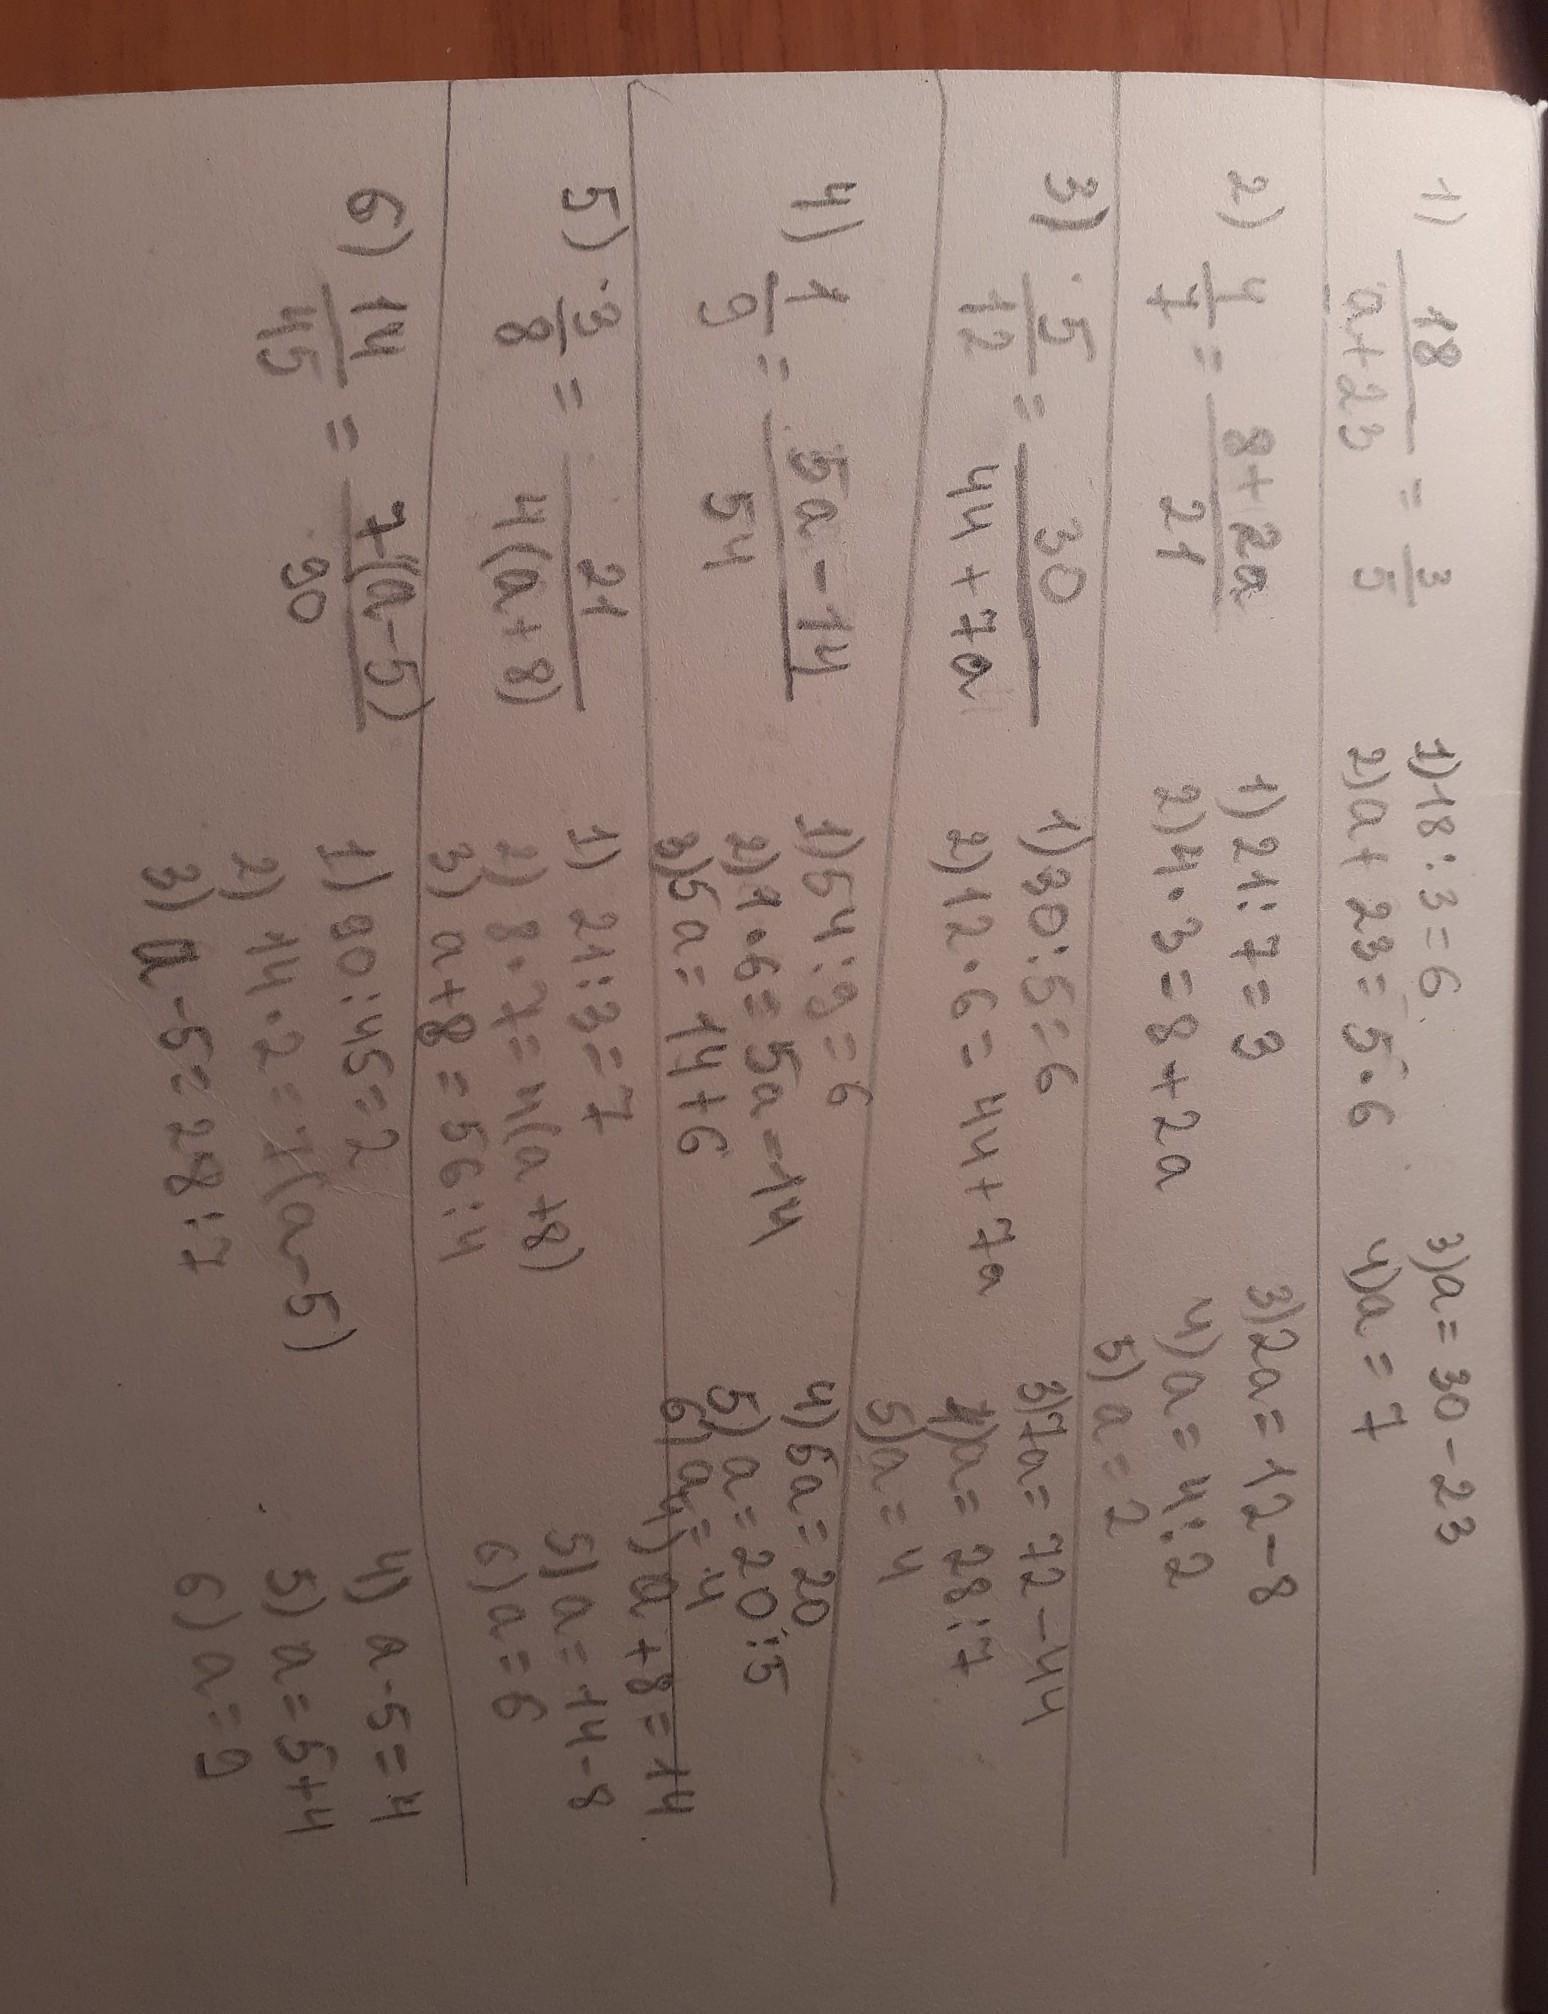 1) 18/(a+23) = 3/5
1) 18:3=6
2) a+23=5·6
3) a=30-23
4) a=7
2) 4/7 = (8+2a)/21
1) 21:7=3
2) 4·3=8+2a
3) 2a=12-8
4) a=4:2
5) a=2
3) 5/12 = 30/(44+7a)
1) 30:5=6
2) 12·6=44+7a
3) 7a=72-44
4) a=28:7
5) a=4
4) 1/9 = (5a-14)/54
1) 54:9=6
2) 1·6=5a-14
3) 5a=14+6
4) 5a=20
5) a=20:5
6) a=4
5) 3/8 = 21/(4(a+8))
1) 21:3=7
2) 8·7=4(a+8)
3) a+8=56:4
4) a+8=14
5) a=14-8
6) a=6
6) 14/45 = 7(a-5)/90
1) 90:45=2
2) 14·2=7(a-5)
3) a-5=28:7
4) a-5=4
5) a=5+4
6) a=9